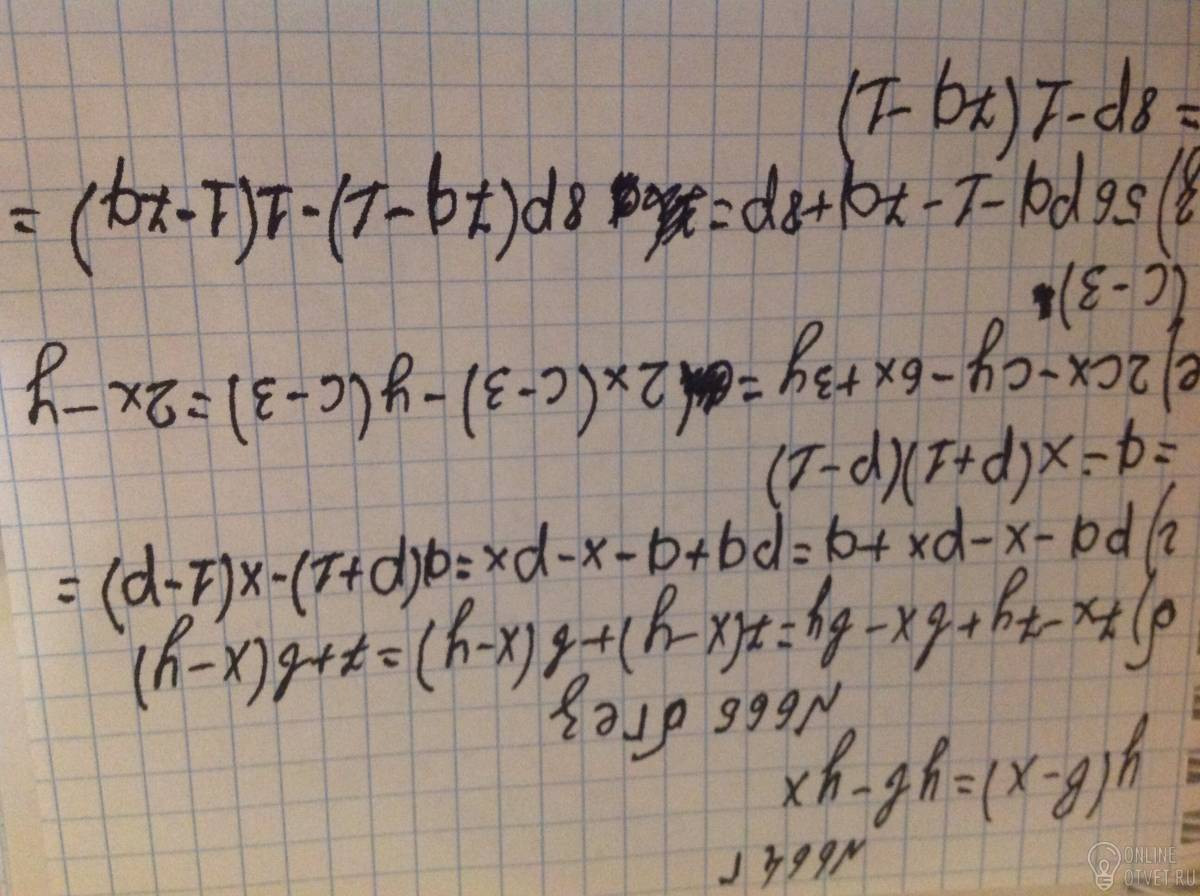 №664 г
у(в-х)=ув-ух
№666 бгез
б) 7x-7y+bx-by=7(x-y)+b(x-y)=7+b(x-y)
г) pq-x-px+q=pq+q-x-px=q(p+1)-x(1-p)=
=q-x(p+1)(p-1)
е) 2cx-cy-6x+3y=2x(c-3)-y(c-3)=2x-y
(c-3)
з) 56pq-1-7q+8p=8p(7q-1)-1(1-7q)=
=8p-1(7q-1)
ONLINE
OTVET.RU